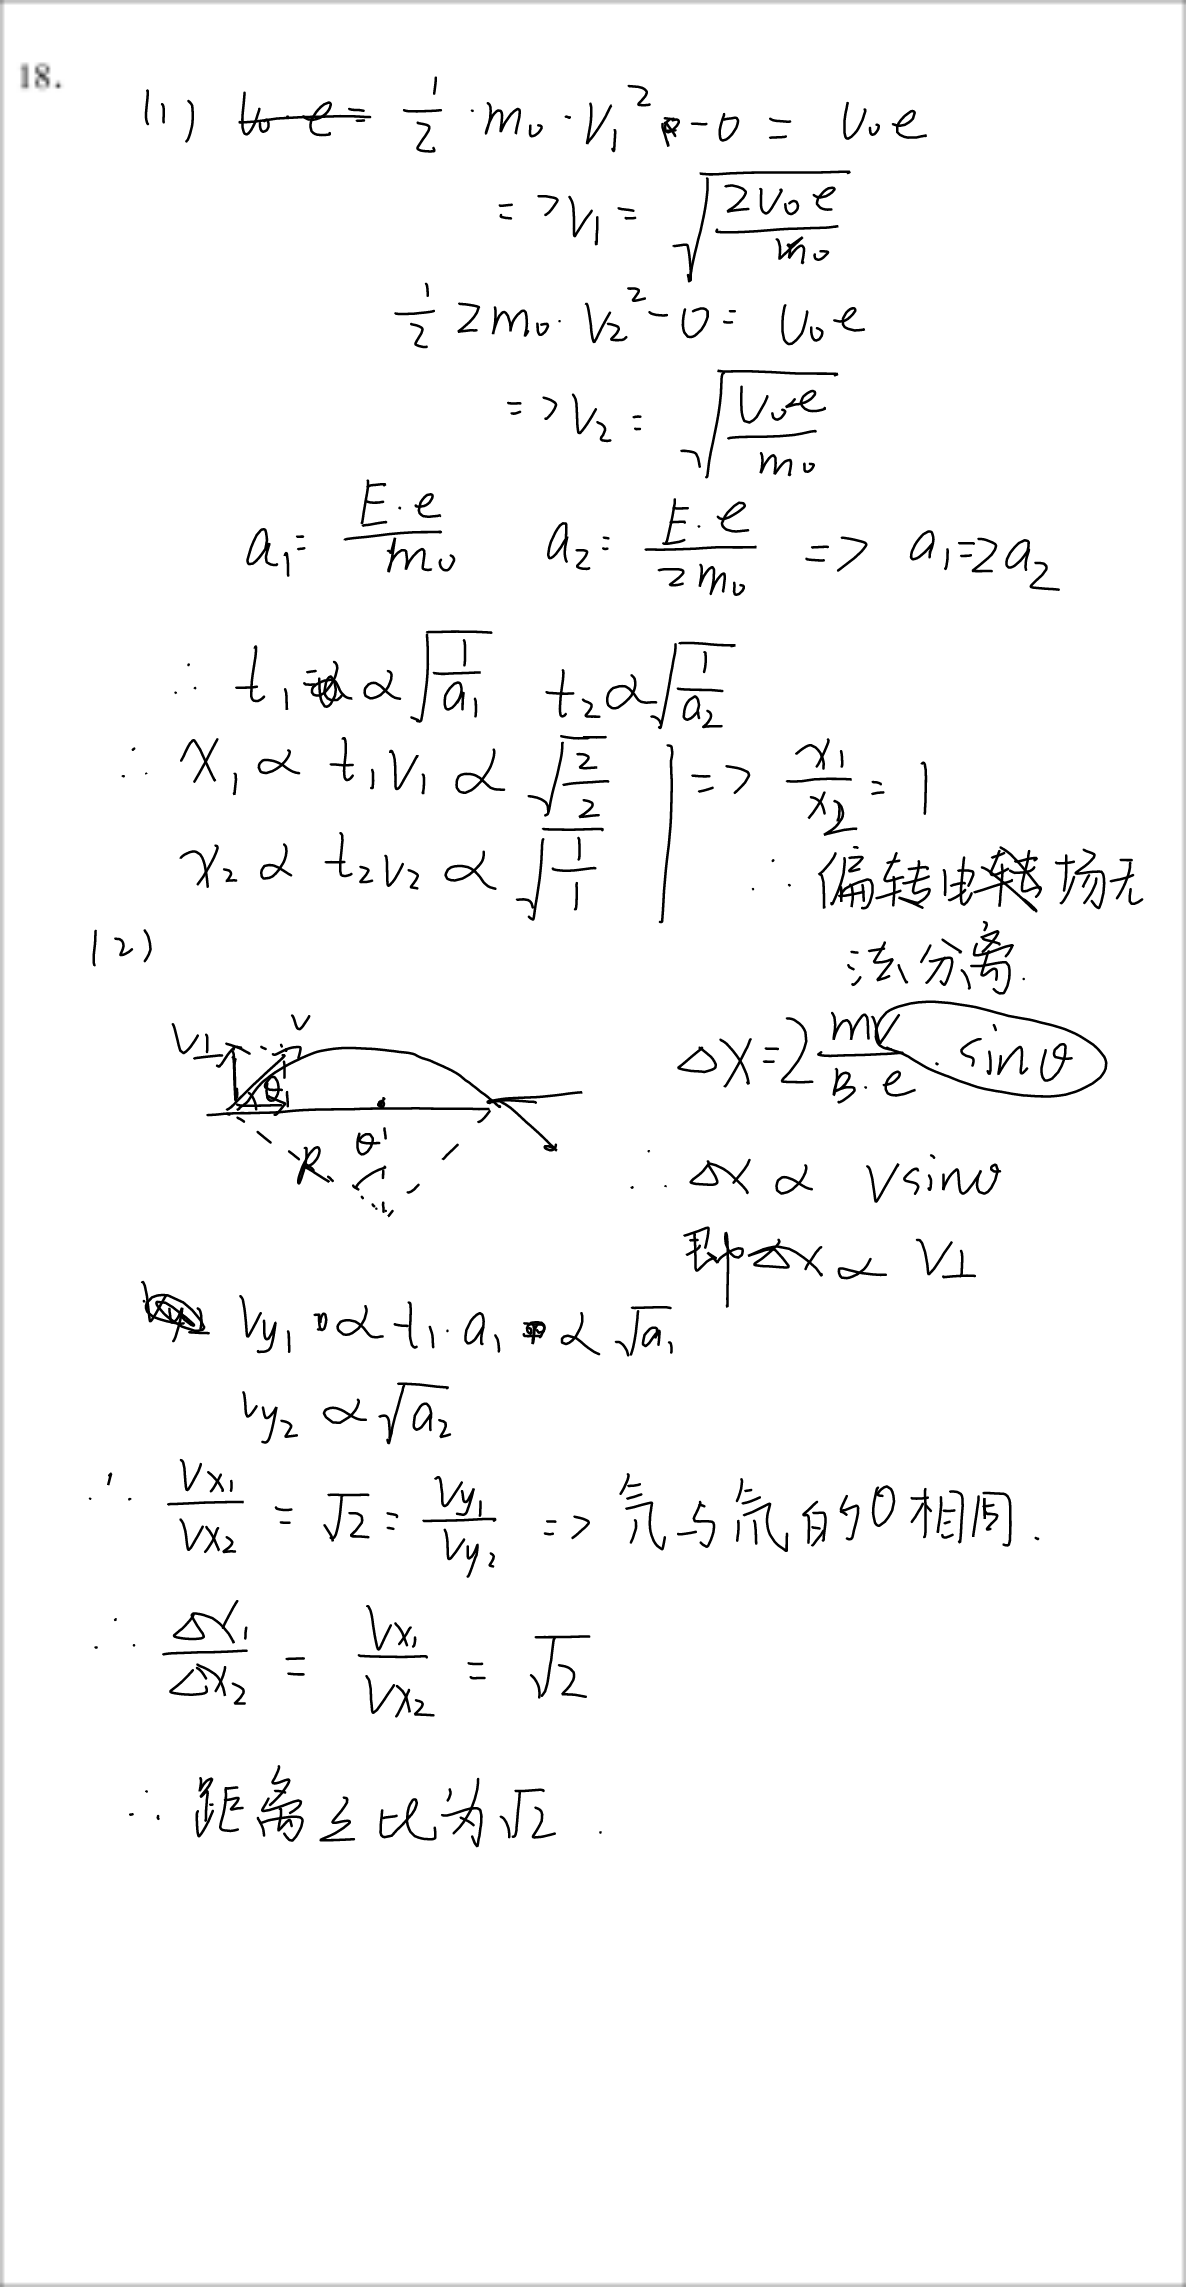 18.
(1) U₀·e= ½·m₀·V₁²-0 = U₀e
=>V₁=√(2U₀e/m₀)
½2m₀·V₂²-0=U₀e
=>V₂=√(U₀e/m₀)
a₁=E·e/m₀ a₂=E·e/2m₀ => a₁=2a₂
∴ t₁∝√(1/a₁) t₂∝√(1/a₂)
∴ x₁∝t₁V₁∝√(2/2) | => x₁/x₂=1
x₂∝t₂V₂∝√(1/1)
∴偏转电转场无
法分离.
(2)
V⊥ V θ
R θ'
ΔX=2mV/B·e·sinθ
∴ΔX∝Vsinθ
即ΔX∝V⊥
Vy₁∝t₁·a₁∝√a₁
Vy₂∝√a₂
∴Vx₁/Vx₂=√2=Vy₁/Vy₂=>氕与氘的θ相同.
∴Δx₁/Δx₂=Vx₁/Vx₂=√2
∴距离之比为√2.